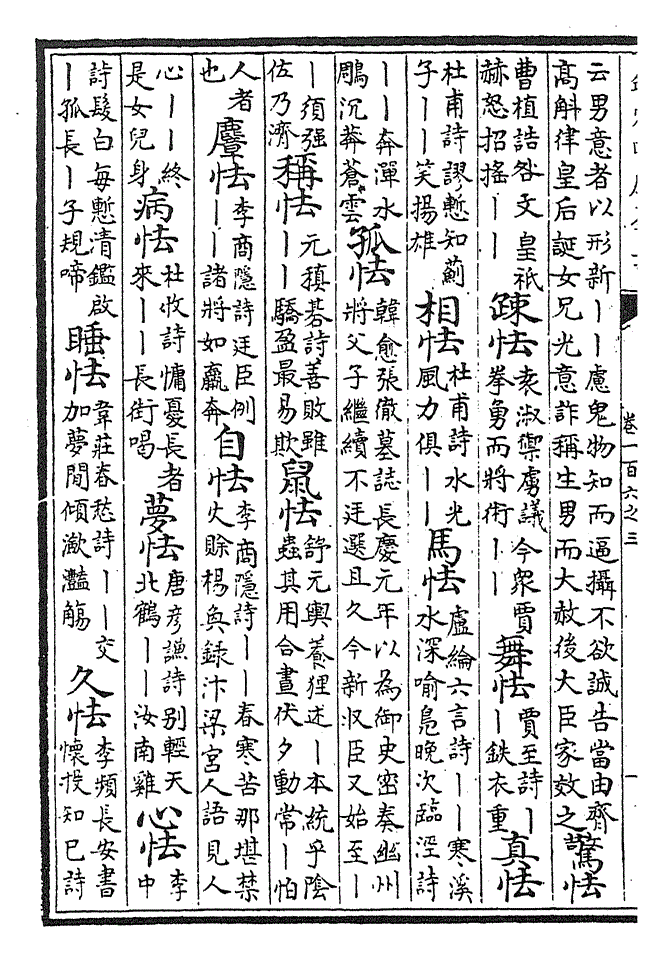 云男意者以形新丨丨慮鬼物知而逼攝不欲誠告當由齊
高斛律皇后誕女兄光意詐稱生男而大赦後大臣家效之
驚怯
曹植誥咎文皇祇
赫怒招搖丨丨
疎怯
袁淑禦虜議今衆賈
拳勇而將術丨丨
舞怯
賈至詩丨
丨鉄衣重
真怯
杜甫詩謬慙知薊
子丨丨笑揚雄
相怯
杜甫詩水光
風力俱丨丨
馬怯
盧綸六言詩丨丨寒溪
水深喻鳬晚次臨涇詩
丨丨奔渾水
鵰沉莽蒼雲
孤怯
韓愈張徹墓誌長慶元年以為御史密奏幽州
將父子繼續不迋選且久今新収臣又始至丨
丨須强
佐乃濟
稱怯
元稹碁詩善敗雖
丨丨驕盈最易欺
鼠怯
舒元輿養狸述丨本統乎陰
蟲其用合晝伏夕動常丨怕
人者
也
麞怯
李商隱詩迋臣例
丨丨諸將如羸奔
自怯
李商隱詩丨丨春寒苦那堪禁
火賒楊奐録汴梁宮人語見人
心丨丨終
是女兒身
病怯
杜牧詩慵憂長者
來丨丨長街喝
夢怯
唐彦謙詩别輕天
北鶴丨丨汝南雞
心怯
李
中
詩髮白毎慙清鑑啟
丨孤長丨子規啼
睡怯
韋莊春愁詩丨丨交
加夢間傾潋灧觴
久怯
李頻長安書
懷投知已詩
卷一百六之三